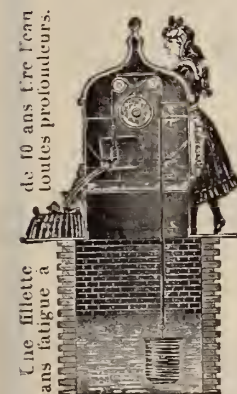 Une fillette de 10 ans tire l'eau
sans fatigue à toutes profondeurs.